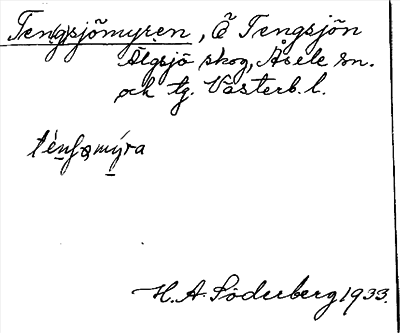 Tengsjömyren, Ö Tengsjön
Älgsjö skog, Åsele sn.
och tg. Västerb. l.
H. A. Söderberg 1933.